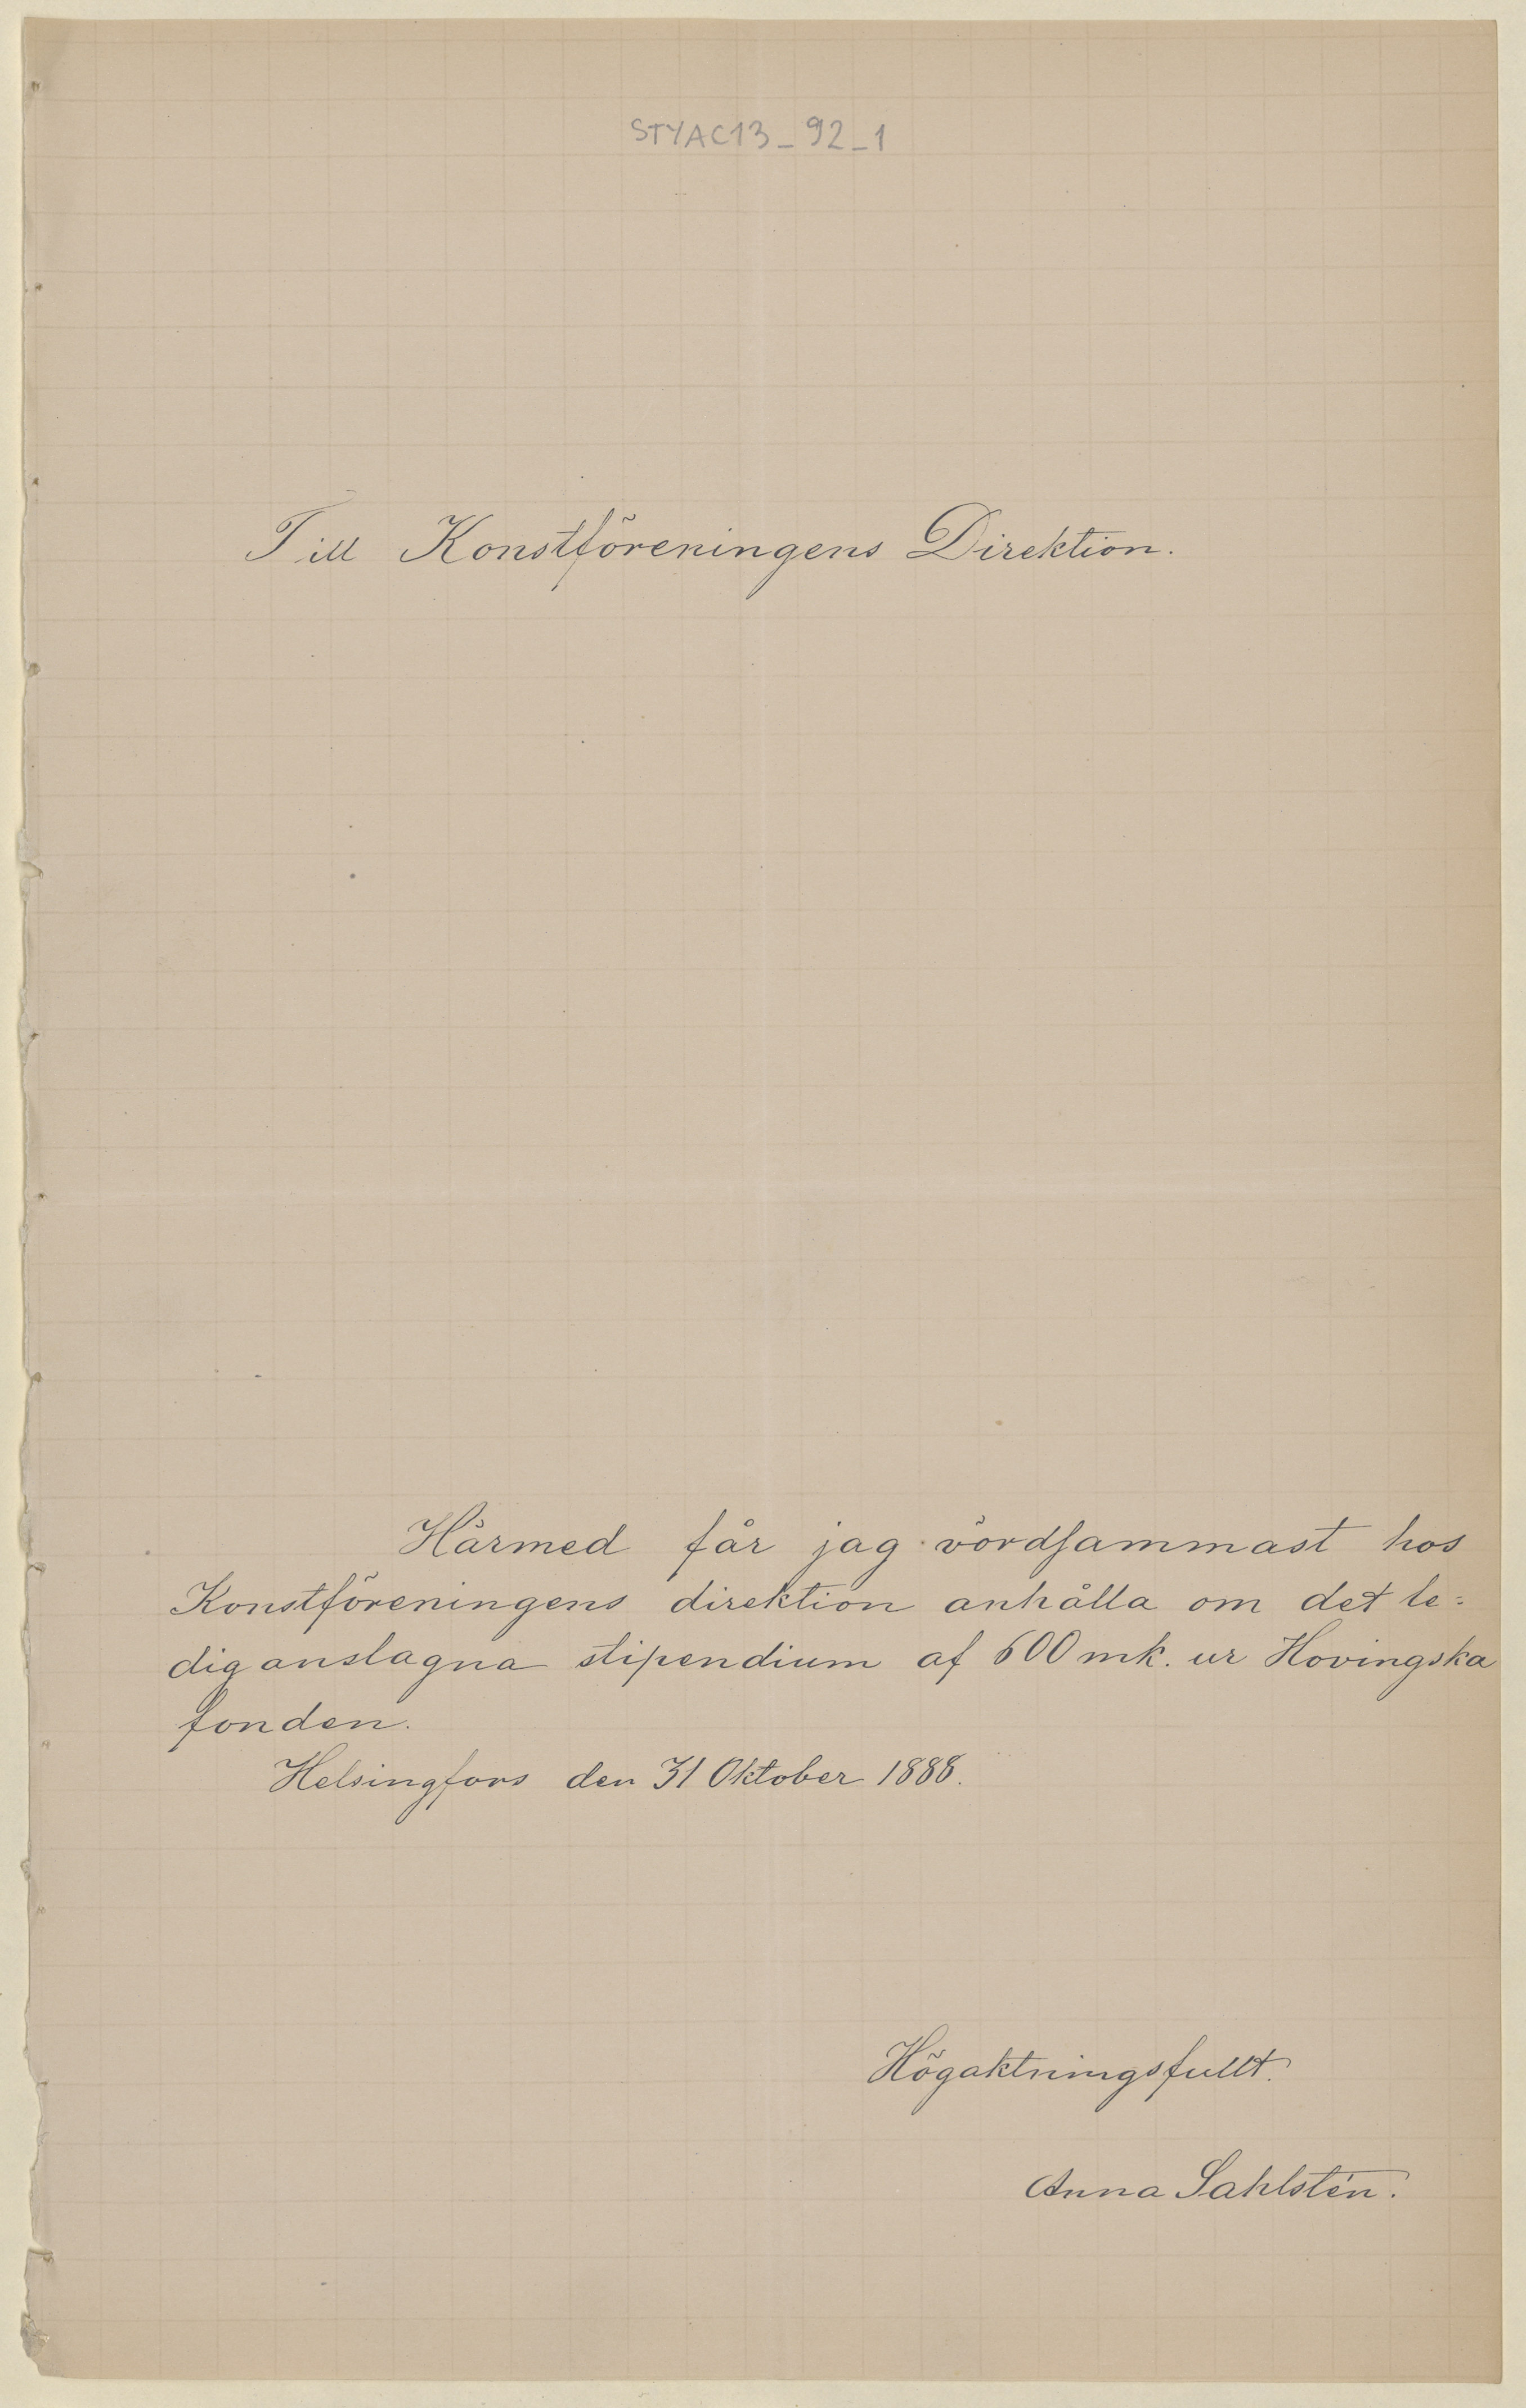 STYAC13_92_1
Till Konstföreningens Direktion.
Härmed får jag vördsammast hos
Konstföreningens direktion anhålla om det le=
diganslagna stipendium af 600 mk. ur Hovingska
fonden.
Helsingfors den 31 Oktober 1888.
Högaktningsfullt.
Anna Sahlstén.